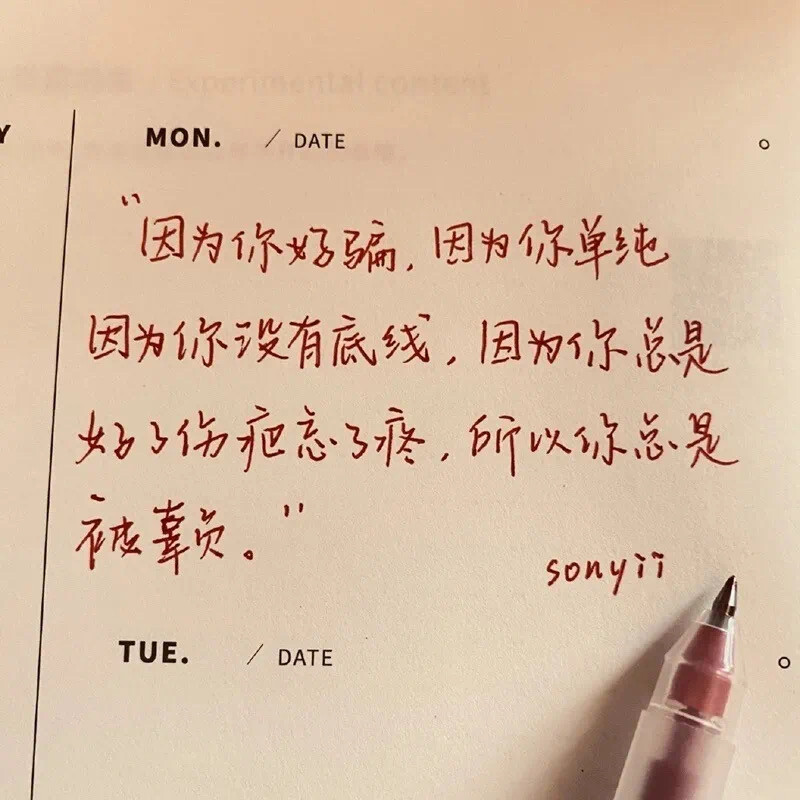 Experimental content
Y
MON. / DATE
"因为你好骗,因为你单纯
因为你没有底线,因为你总是
好了伤疤忘了疼,所以你总是
被辜负。"
sonyii
TUE. / DATE